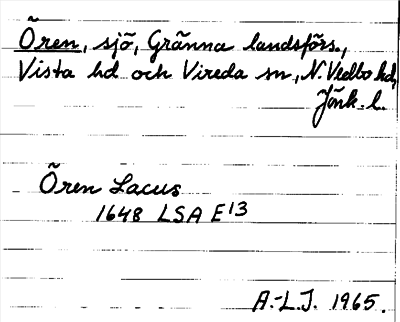 Ören, sjö, Gränna landsförs.,
Vista hd och Vireda sn, N. Vedbo hd,
Jönk. l.
Ören Lacus
1648 LSA E13
A.-L.J. 1965.